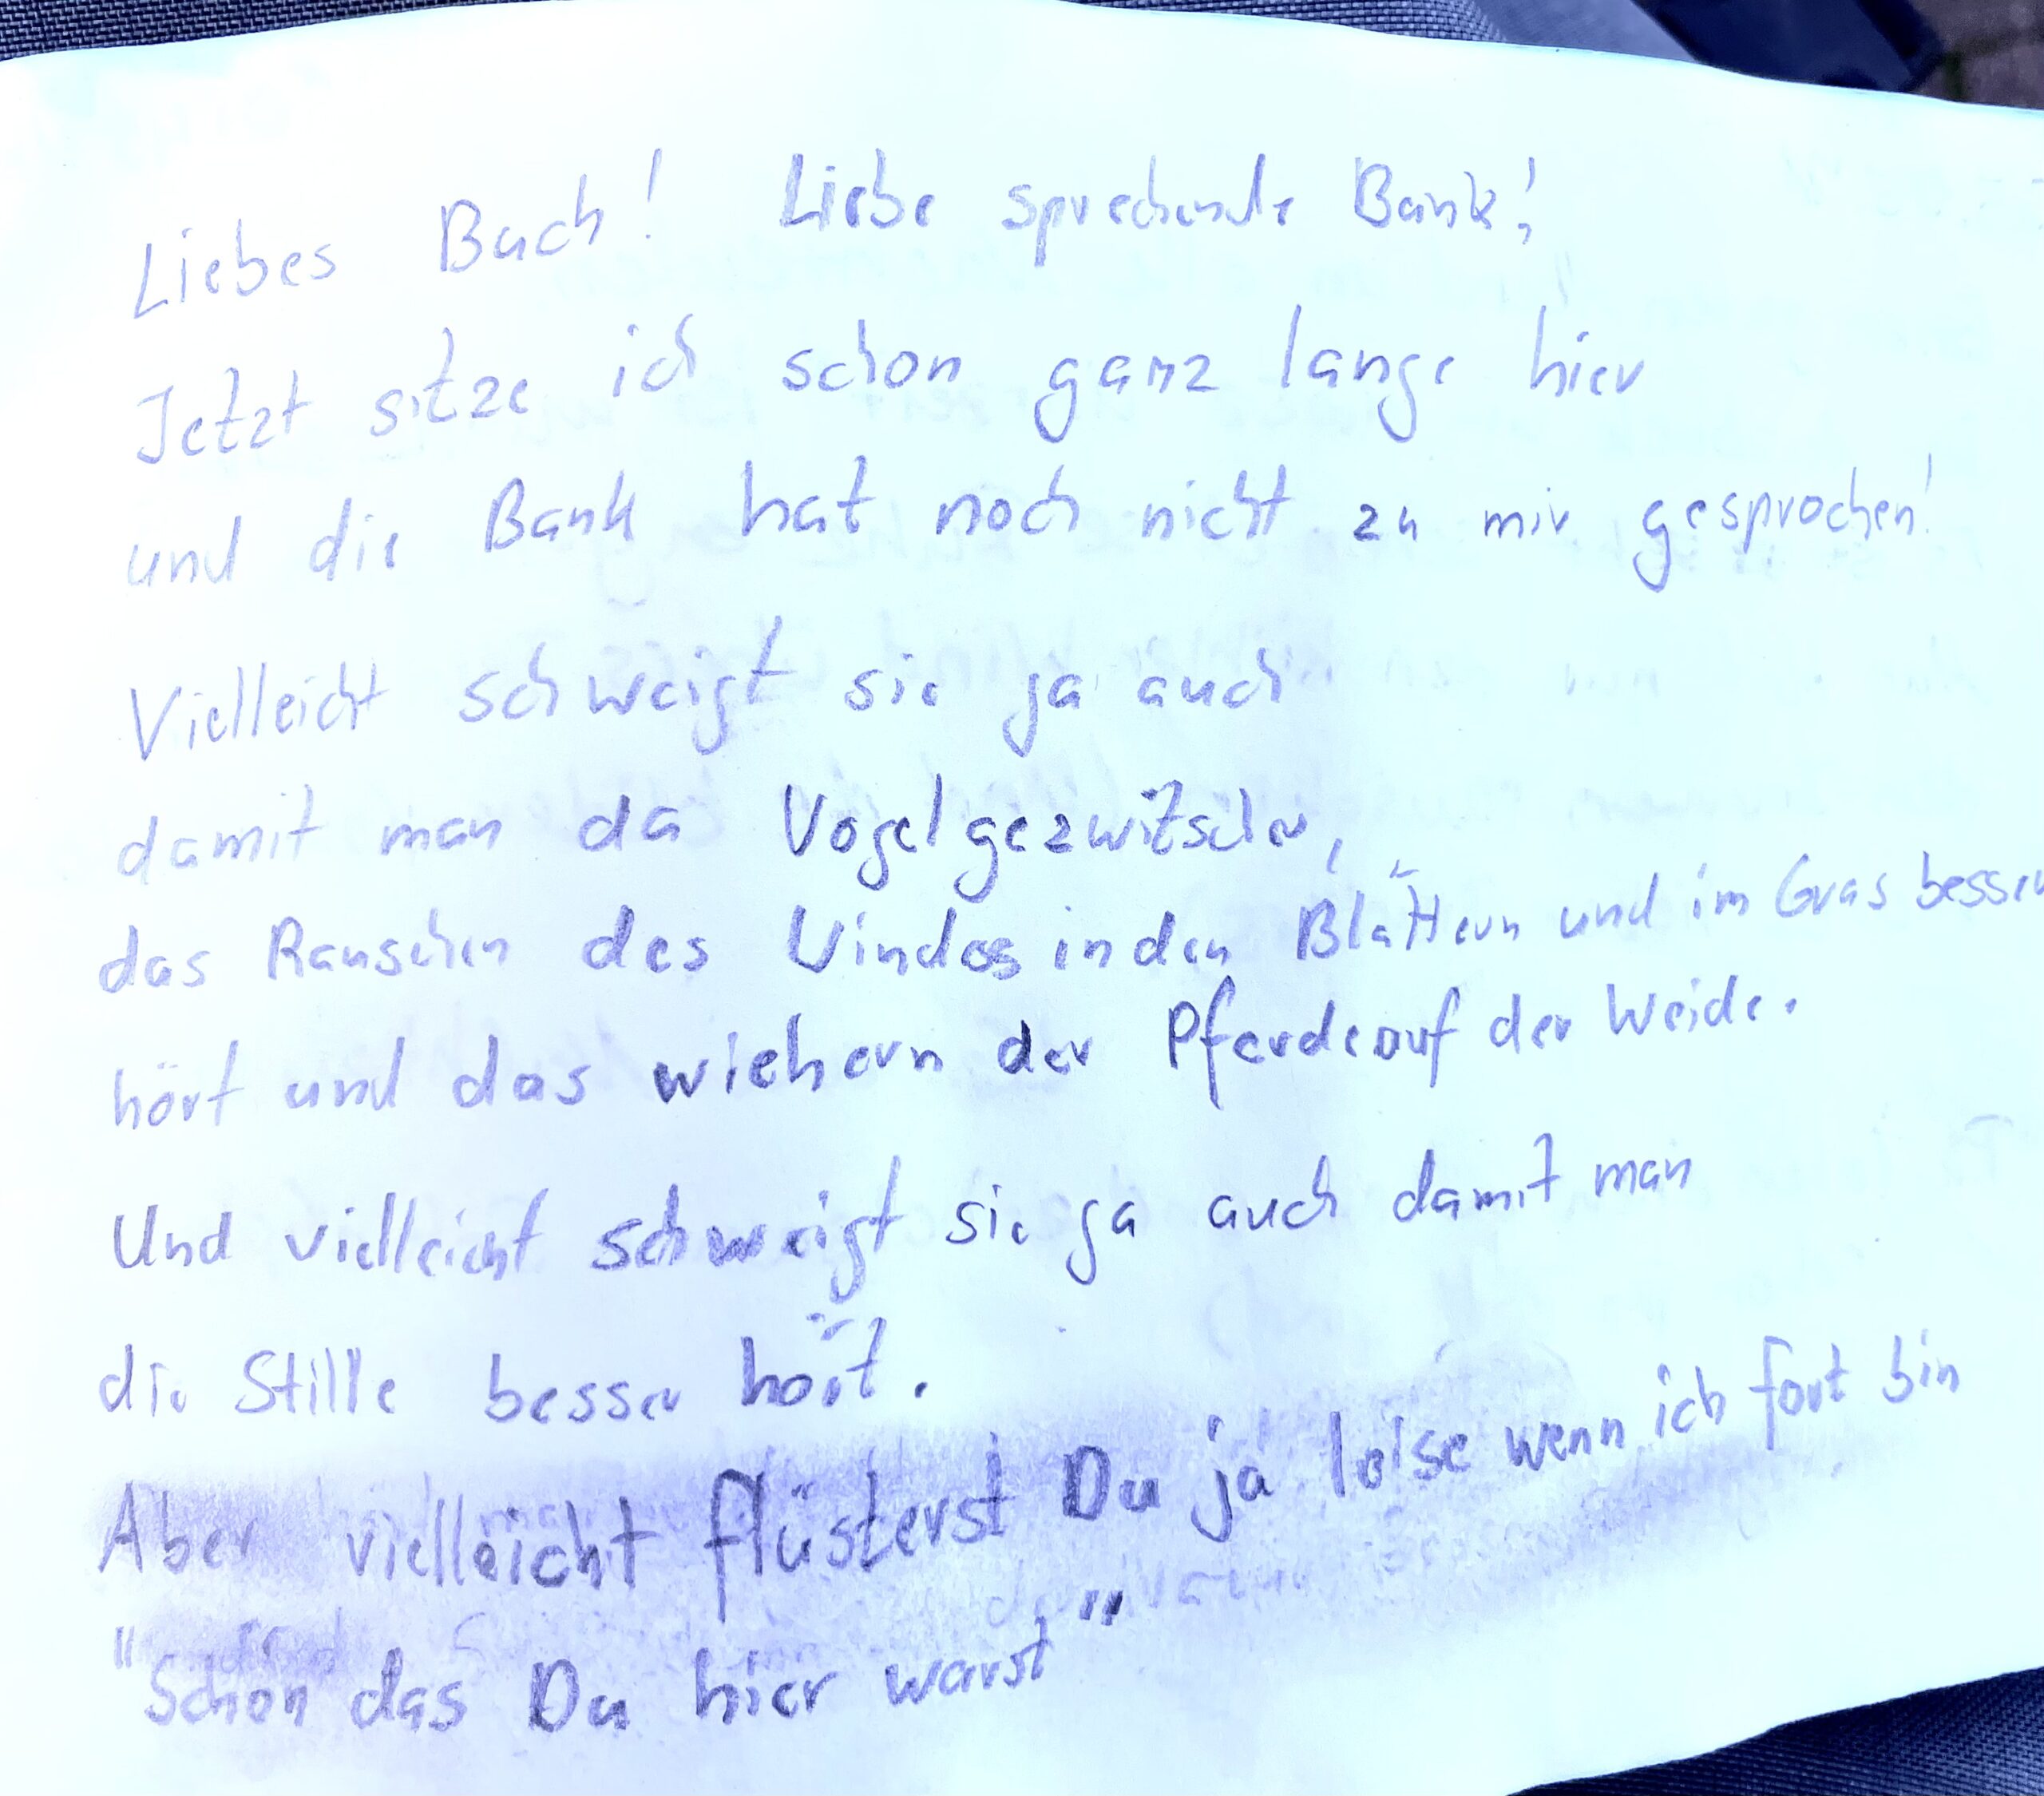 Liebes Buch! Liebe sprechende Bank!
Jetzt sitze ich schon ganz lange hier
und die Bank hat noch nicht zu mir gesprochen!
Vielleicht schweigt sie ja auch
damit man da Vogelgezwitscher,
das Rauschen des Windes in den Blättern und im Gras besser
hört und das wiehern der Pferde auf der Weide.
Und vielleicht schweigt sie ja auch damit man
die Stille besser hört.
Aber vielleicht flüsterst Du ja leise wenn ich fort bin
"Schön das Du hier warst"